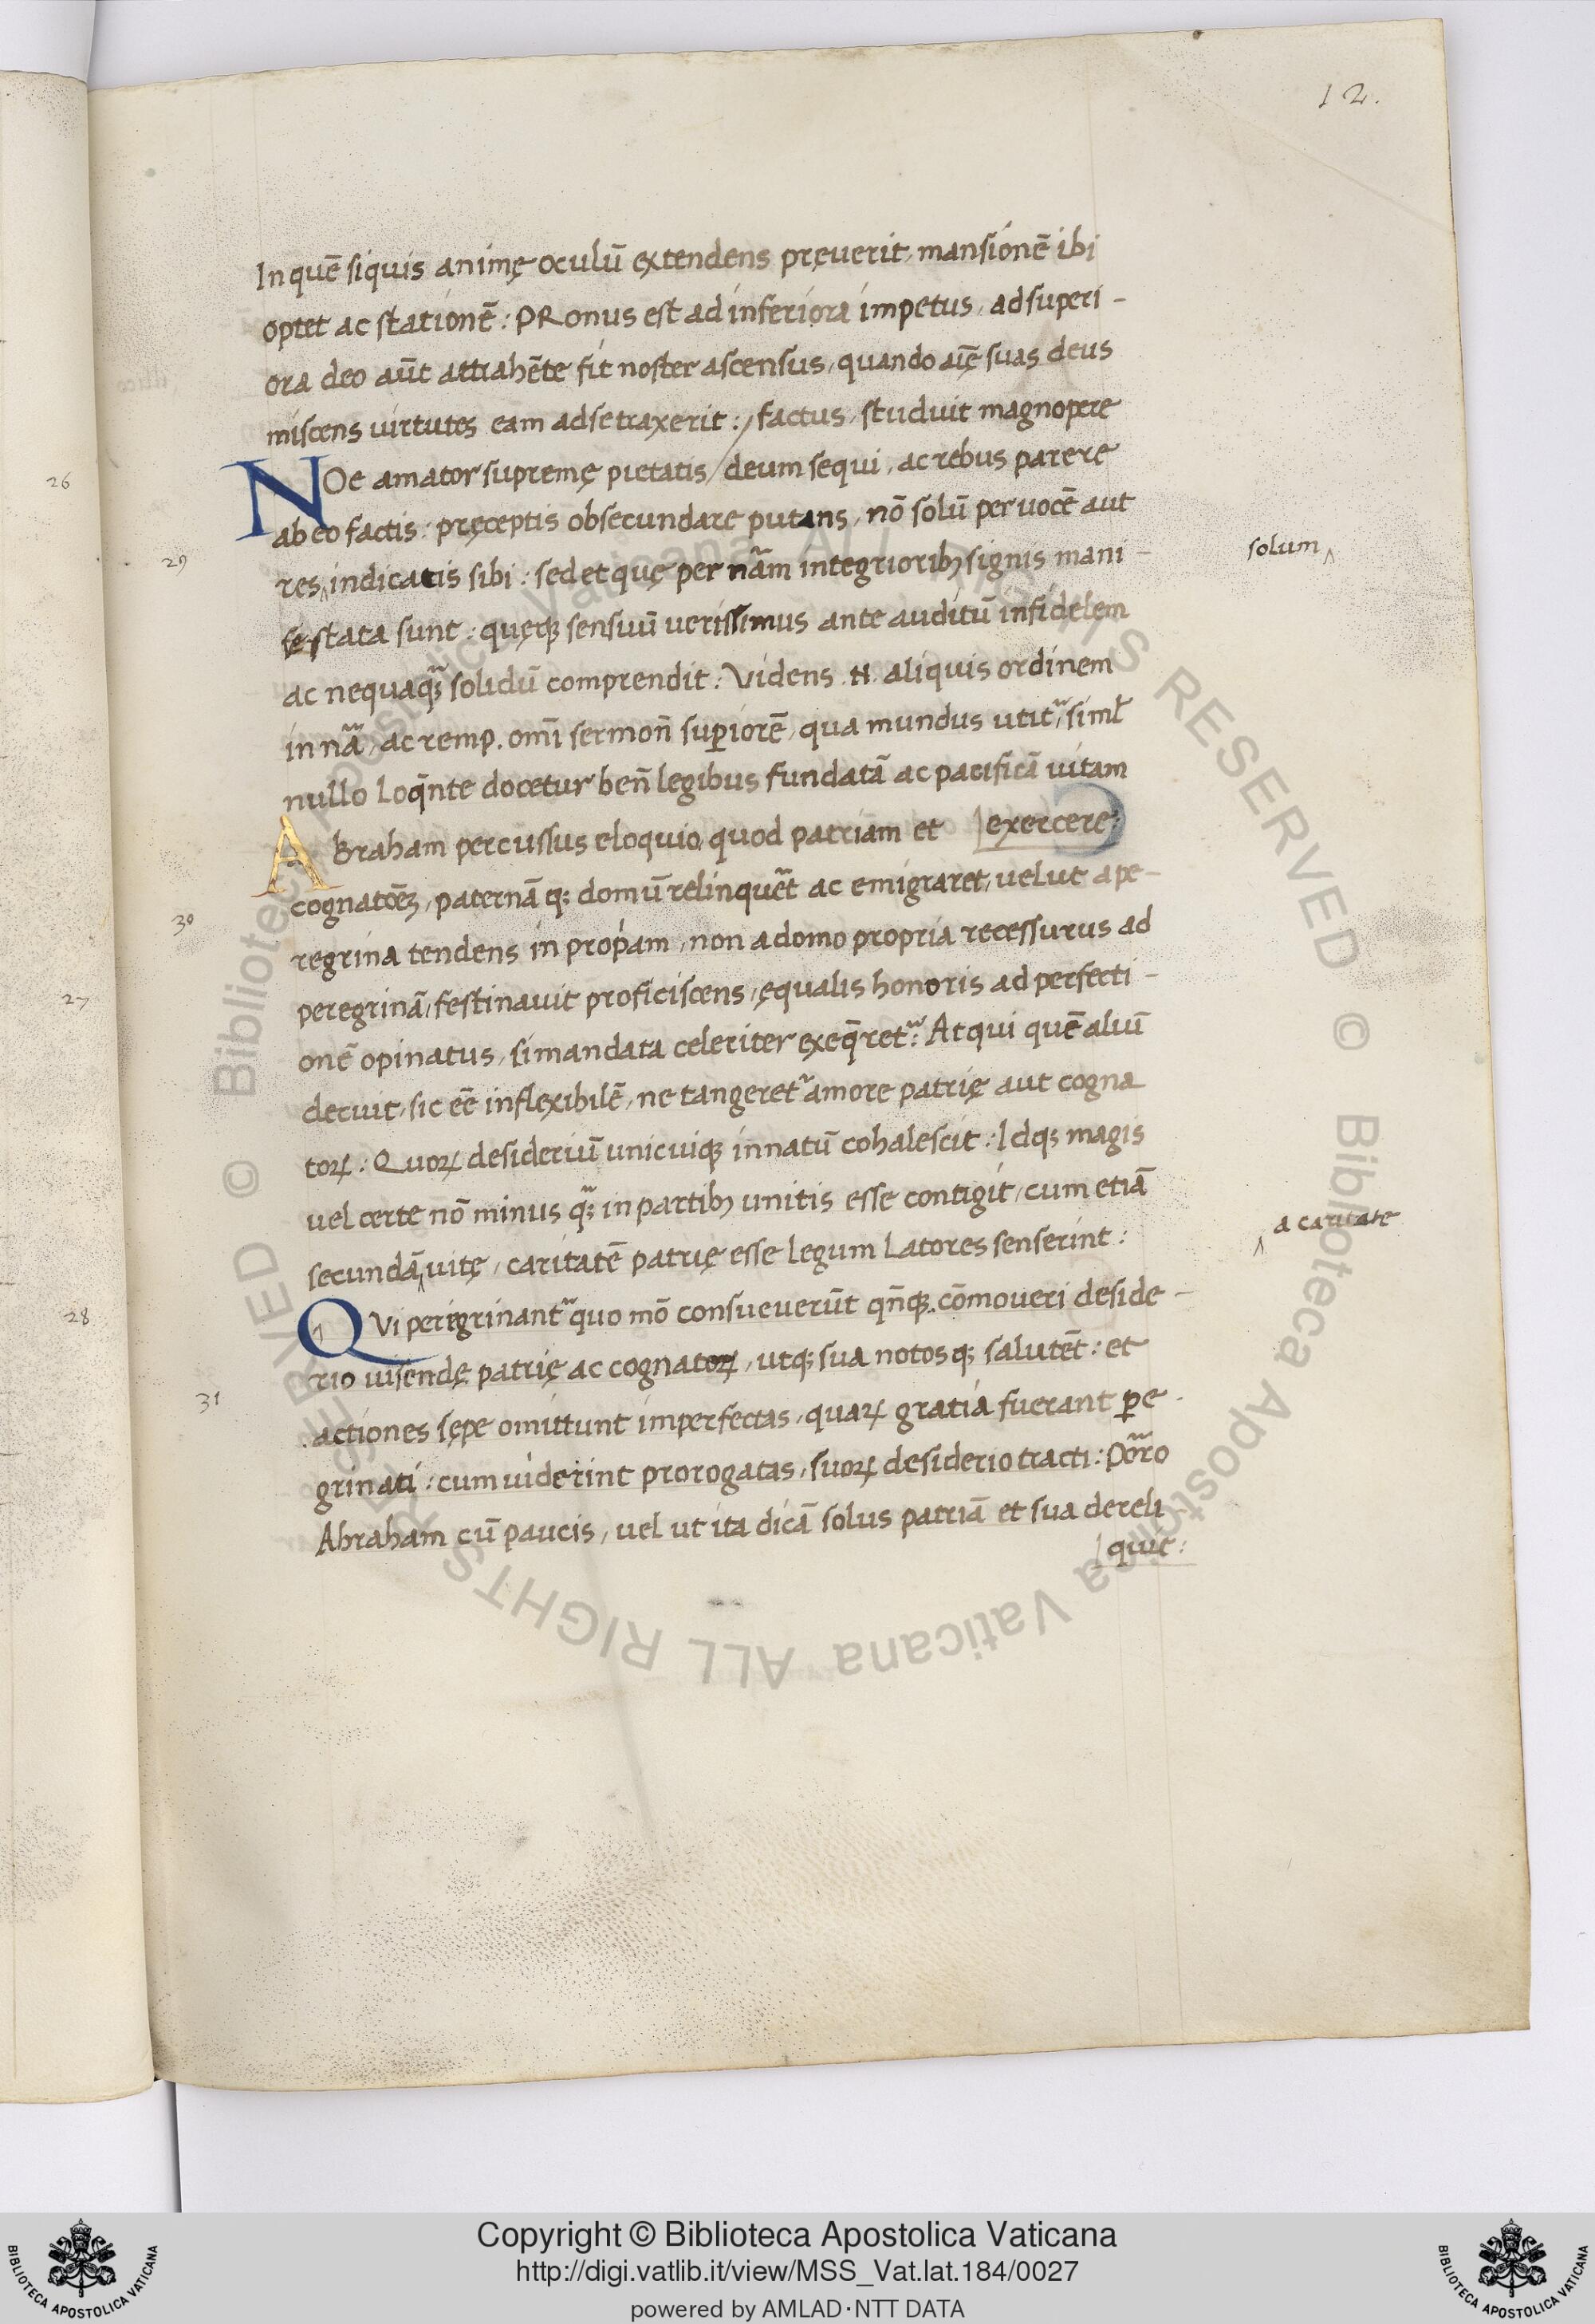 12.
In quē siquis animę oculū extendens pręuerit, mansionē ibi
optet ac stationē: PRonus est ad inferiora impetus, ad superi-
ora deo aūt attrahēte fit noster ascensus, quando aīę suas deus
miscens uirtutes eam ad se traxerit: / factus, studuit magnopere
26
NOe amator supremę pietatis / deum sequi, ac rebus parere
ab eo factis: pręceptis obsecundare putans, nō solū per uocē aut
29
res ‸ indicatis sibi: sed et quę per nām integriorib; signis mani-
solum ‸
festata sunt: quęq; sensuū uerissimus ante auditū infidelem
ac nequaq̃; solidū comprendit: Videns .N. aliquis ordinem
in nā, ac remp. omī sermoñ superiorē, qua mundus utit̃, siml̄
nullo loq̄nte docetur beñ legibus fundatā ac pacificā uitam
Abraham percussus eloquio, quod patriam et | exercere:
cognatōēz, paternā q; domū relinqueret ac emigraret, uelut a pe-
30
regrina tendens in propam, non a domo propria recessurus ad
27
peregrinā, festinauit proficiscens, ęqualis honoris ad perfecti-
onē opinatus, si mandata celeriter exeq̄ret̃: At qui quē aliū
decuit, sic eē inflexibilē, ne tangeret̃ amore patrię aut cogna
toꝝ: Quoꝝ desideriū unicuiq; innatū cohalescit: Idq; magis
uel certe nō minus q̃; in partib; unitis esse contigit, cum etiā
secundā ‸ uitę, caritatē patrię esse legum Latores senserint:
‸ a caritate
28
QVi perigrinant̃ quo mō consueuerūt qñq; cōmoueri deside-
rio uisendę patrię ac cognatoꝝ, utq; sua notos q; salutēt: et
31
actiones sępe omittunt imperfectas, quaꝝ gratia fuerant ꝑe-
grinati: cum uiderint prorogatas, suoꝝ desiderio tracti: Porro
Abraham cū paucis, uel ut ita dicā solus patriā et sua dereli
| quit:
Copyright © Biblioteca Apostolica Vaticana
http://digi.vatlib.it/view/MSS_Vat.lat.184/0027
powered by AMLAD·NTT DATA
BIBLIOTECA APOSTOLICA VATICANA
BIBLIOTECA APOSTOLICA VATICANA
© Biblioteca Apostolica Vaticana ALL RIGHTS RESERVED © Biblioteca Apostolica Vaticana ALL RIGHTS RESERVED